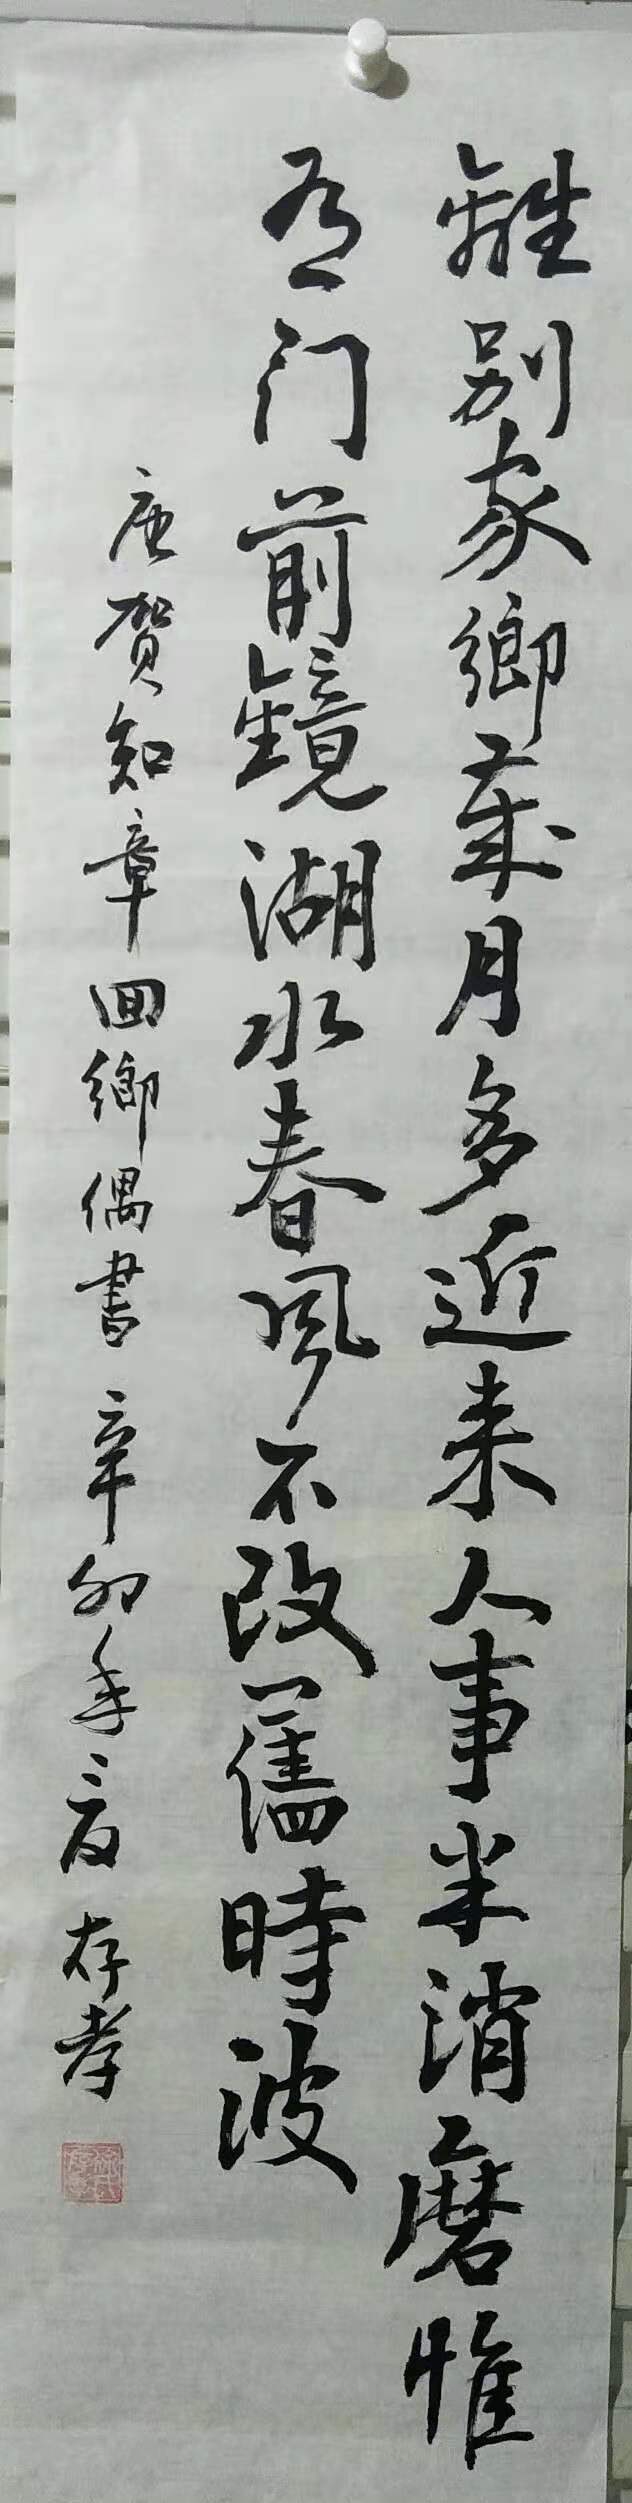 離别家鄉歲月多近来人事半消磨惟
有门前鏡湖水春風不改舊時波
唐贺知章回鄉偶書 辛卯年夏 存孝